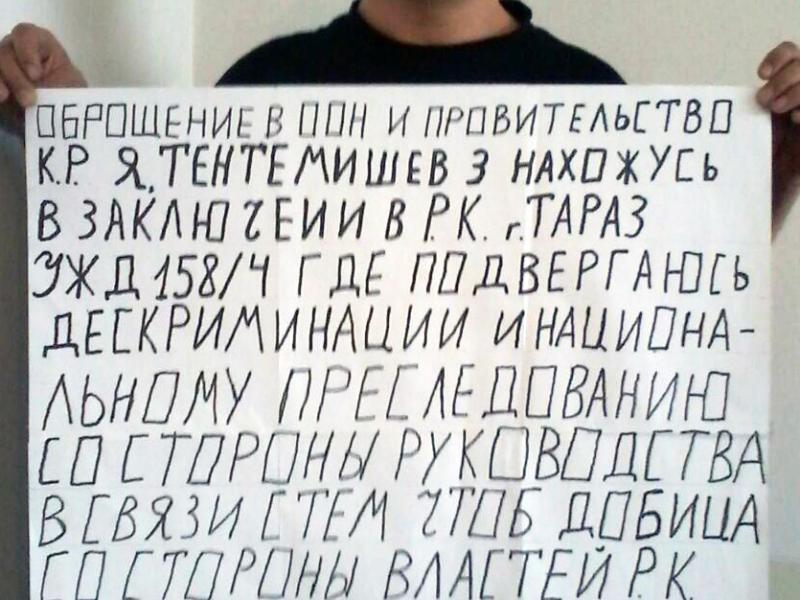 ОБРОЩЕНИЕ В ООН И ПРОВИТЕЛЬСТВО
К.Р. Я, ТЕНТЕМИШЕВ З НАХОЖУСЬ
В ЗАКЛЮЧЕИИ В Р.К. г. ТАРАЗ
УЖД 158/4 ГДЕ ПОДВЕРГАЮСЬ
ДЕСКРИМИНАЦИИ И НАЦИОНА-
ЛЬНОМУ ПРЕСЛЕДОВАНИЮ
СО СТОРОНЫ РУКОВОДСТВА
В СВЯЗИ С ТЕМ ЧТОБ ДОБИЦА
СО СТОРОНЫ ВЛАСТЕЙ Р.К.